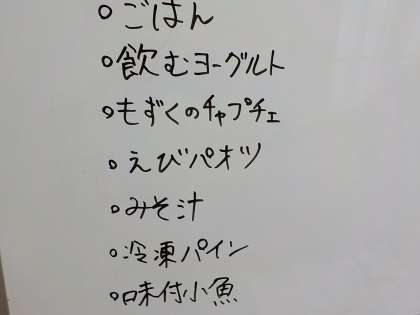 ○ごはん
○飲むヨーグルト
○もずくのチャプチェ
○えびパオツ
○みそ汁
○冷凍パイン
○味付小魚